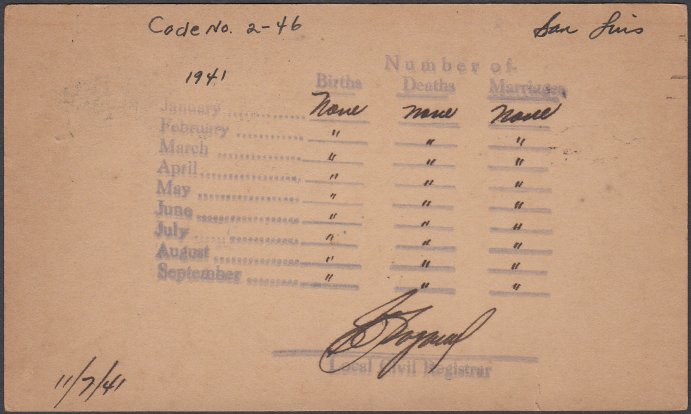 Code No. 2-46 San Luis
Number of
1941 Births Deaths Marriages
January None None None
February " " "
March " " "
April " " "
May " " "
June " " "
July " " "
August " " "
September " " "
Local Civil Registrar
11/7/41